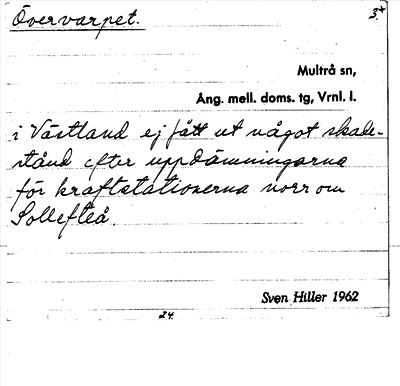 Övervarpet. 3.*
Multrå sn,
Ång. mell. doms. tg, Vrnl. l.
i Västland ej fått ut något skade-
stånd efter uppdämningarna
för kraftstationerna norr om
Sollefteå.
Sven Hiller 1962
24.